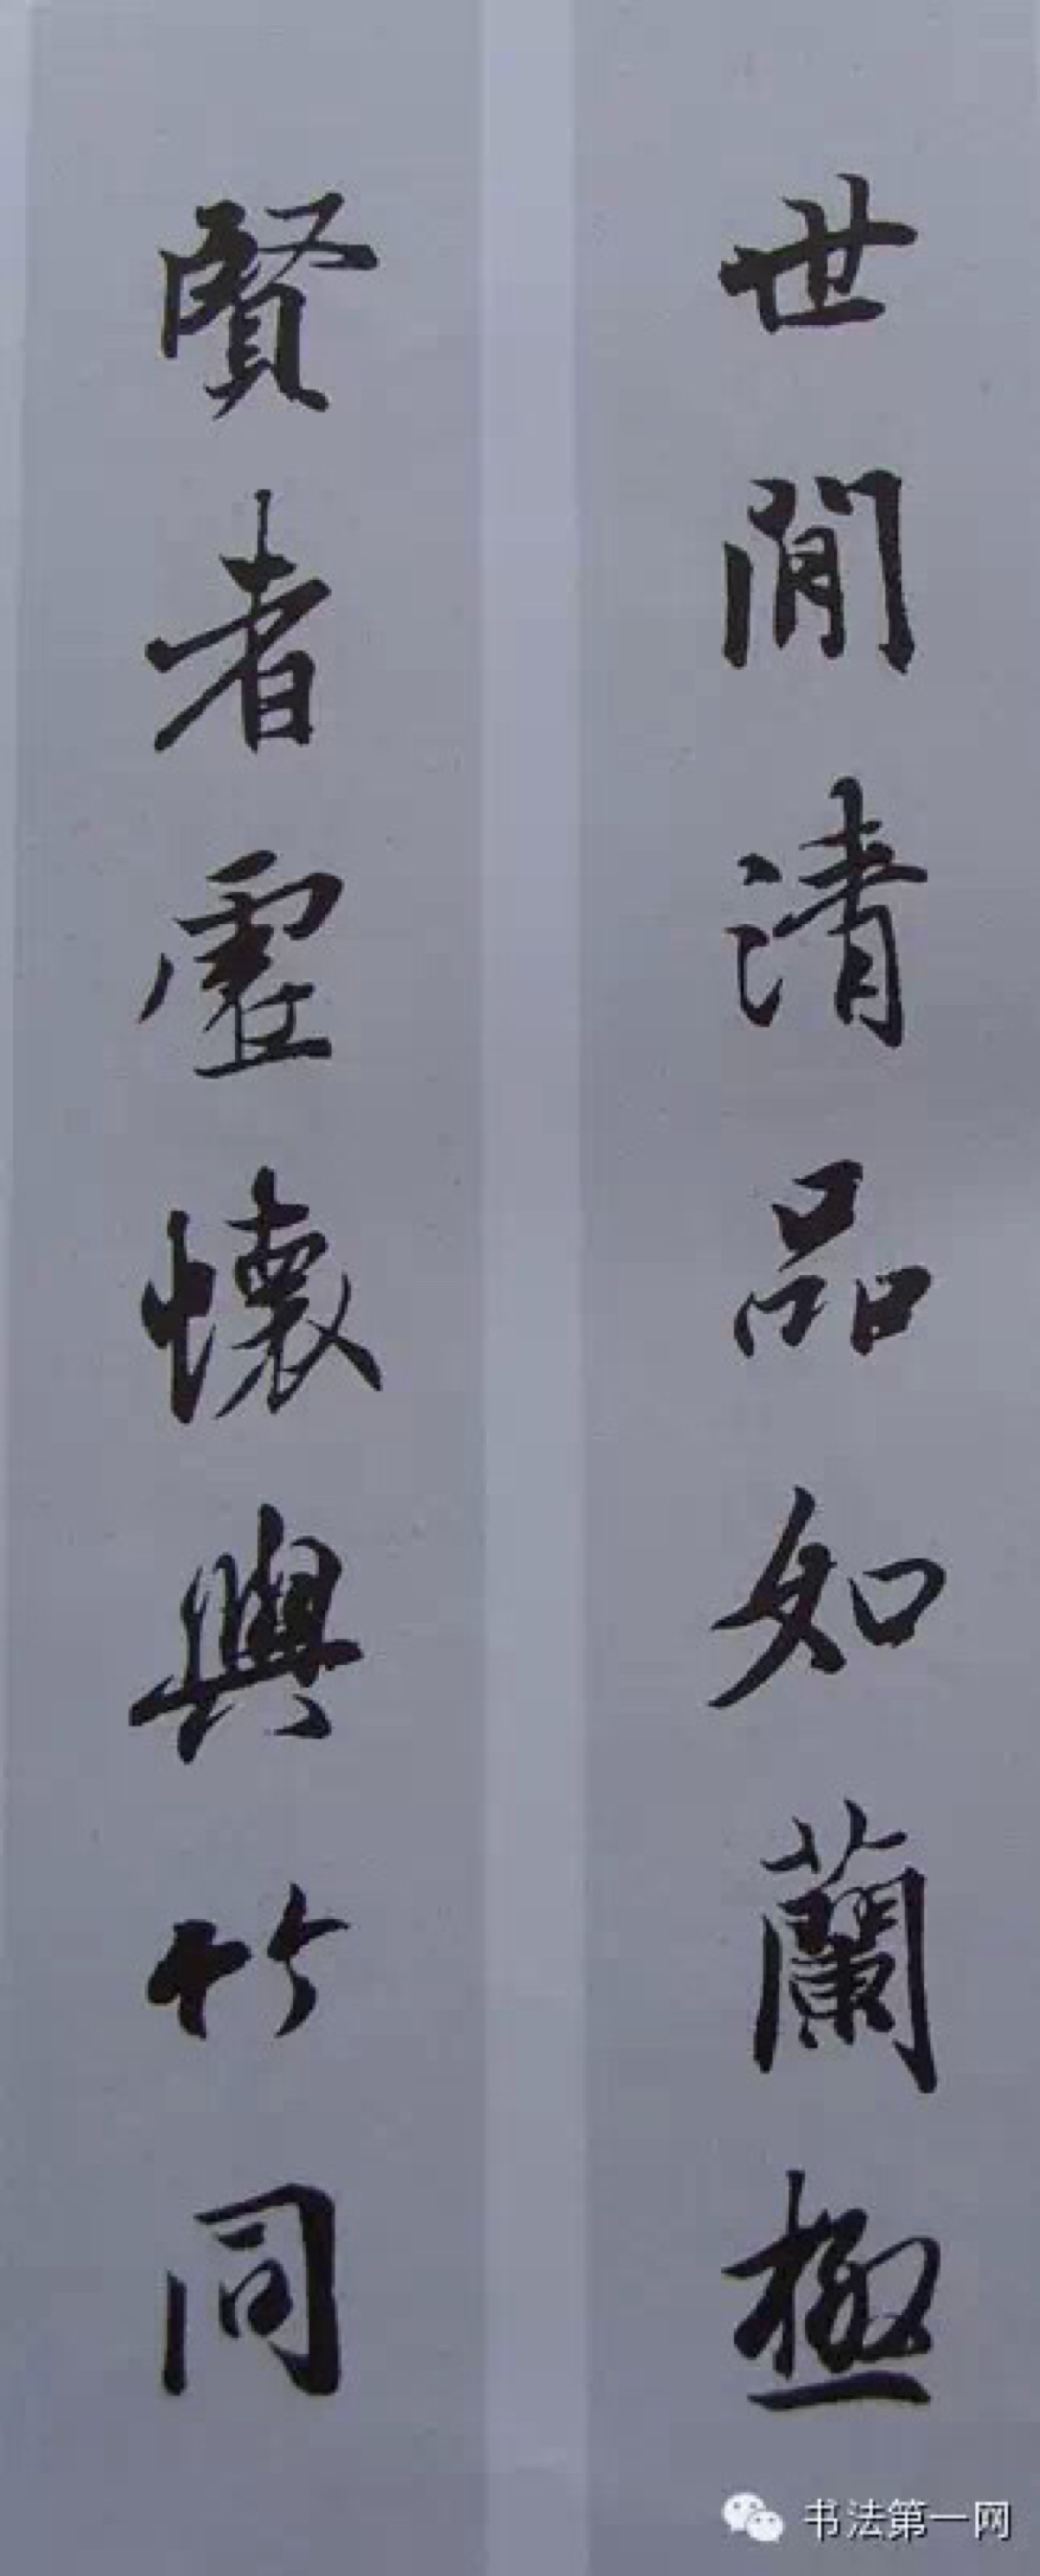 世間清品如蘭極
賢者虛懷與竹同
书法第一网